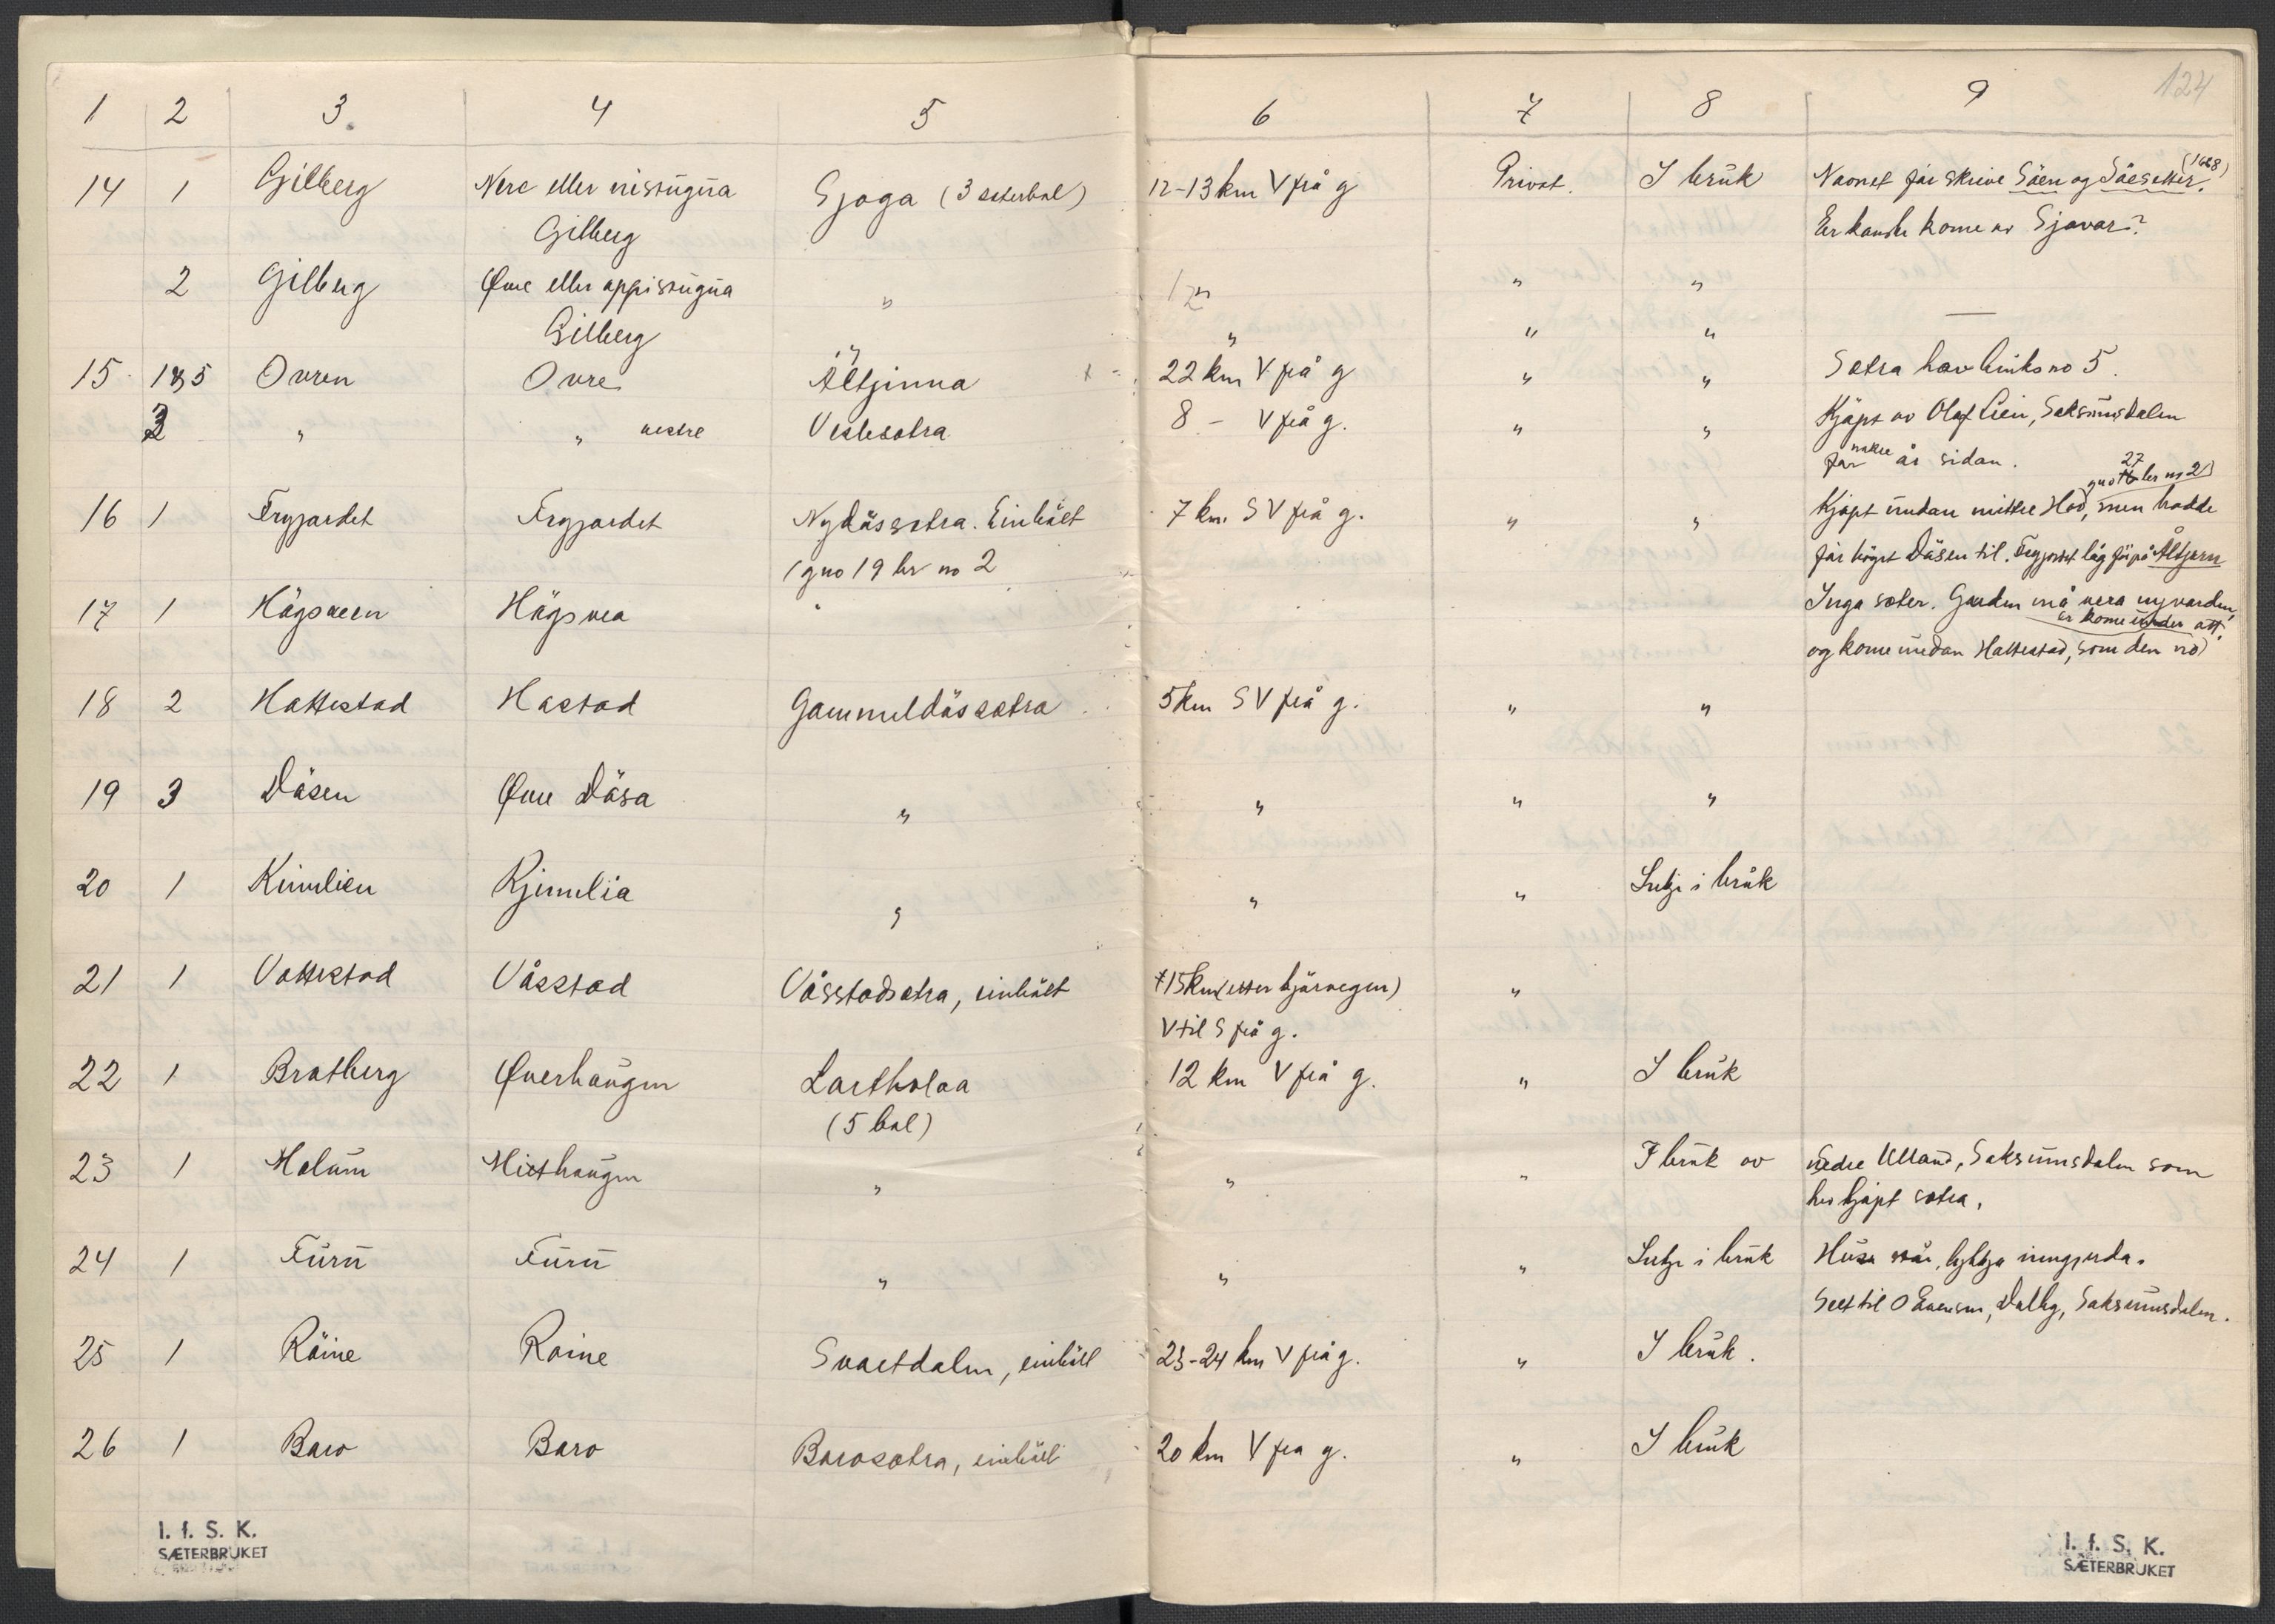 124
1 2 3 4 5 6 7 8 9
14 1 Gilberg Nere eller nistugua Sjoga (3 seterbol) 12-13 km V frå g Privat. I bruk Navnet før skrive Såen og Såesetter. (1668)
Gilberg Er kanske kome av Sjovar?
2 Gilberg Øvre eller oppistugua " " " "
Gilberg " " " " —
15 1 & 5 Ovren Ovre Åltjinna 22 km V frå g " " Setra hev bruks no 5.
3 " " vestre Veslesetra 8 - V frå g. " " Kjøpt av Olaf Lien, Saksumsdalen
for nokre år sidan.
27
16 1 Frygardet Frygardet Nydåssetra. Einbølt 7 km. S V frå g. " " Kjøpt undan mittre Hov, gno br no 2 men hadde
(gno 19 br no 2 før høyrt Dåsen til. Frygardet låg før på Åltjern
17 1 Hågåveen Hågåvea Inga seter. Garden må vera nyvorden,
og kome undan Hattestad, som den no er kome under att.
18 2 Hattestad Hastad Gammeldåssetra 5 km S V frå g. " "
19 3 Dåsen Øvre Dåsa " " " "
20 1 Kimlien Kjimlia " " " Ikkje i bruk
21 1 Vattestad Våsstad Våsstadsetra, einbølt 15 km (etter kjørvegen) "
V til S frå g.
22 1 Bratberg Øverhaugen Lortholoa 12 km V frå g. " I bruk
(5 bol)
23 1 Holum Mitthaugen " " " I bruk av nedre Ulland, Saksumsdalen som
hev kjøpt setra.
24 1 Furu Furu " " " Ikkje i bruk Husa står, lykkja inngjerda.
Selt til O Evensen, Dalby, Saksumsdalen.
25 1 Råine Roine Svartdalen, einbølt 23-24 km V frå g. " I bruk.
26 1 Baro Baro Barosetra, einbølt 20 km V fra g. " I bruk
I. f. S. K.
SÆTERBRUKET
I. f. S. K.
SÆTERBRUKET